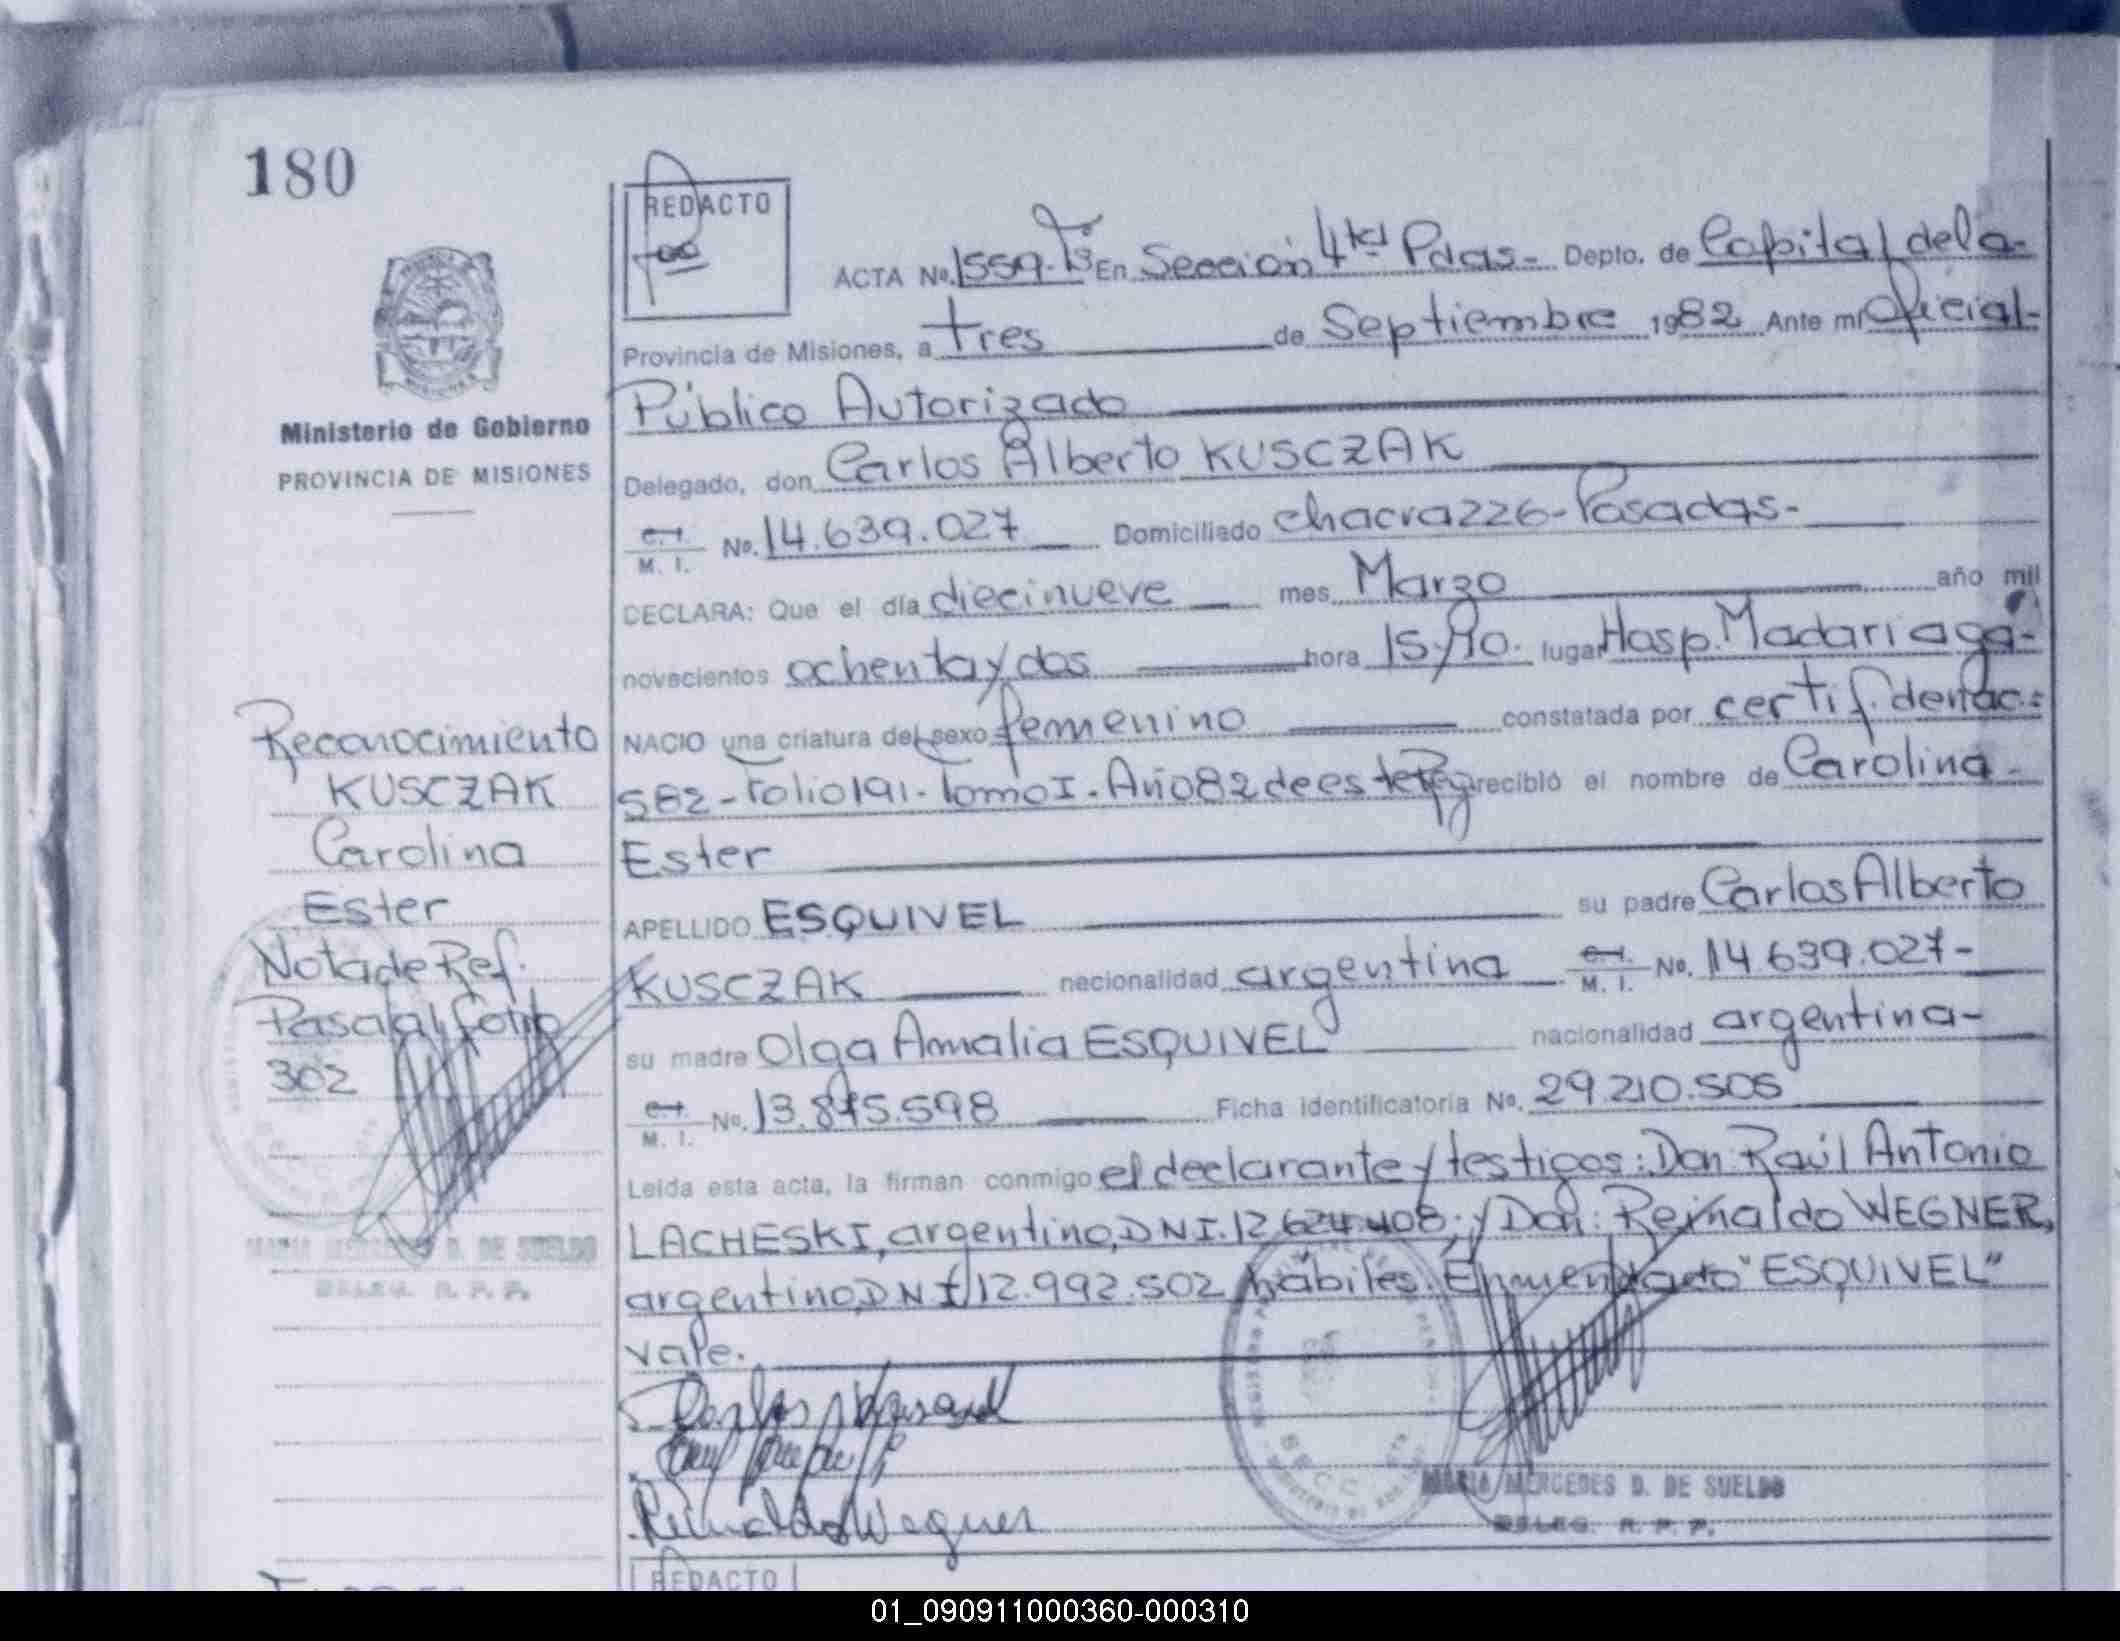 180
REDACTO
ACTA No. 1559. Tº Iº En Sección 4ta Pdas- Depto. de Capital de la-
Provincia de Misiones, a tres de Septiembre 1982 Ante mi Oficial-
Público Autorizado
Ministerio de Gobierno
PROVINCIA DE MISIONES
Delegado, don Carlos Alberto KUSCZAK
C.I. M. I. No. 14.639.027 Domiciliado chacra 226-Posadas-
DECLARA: Que el día diecinueve mes Marzo año mil
novecientos ochenta y dos hora 15y10. lugar Hosp. Madariaga-
NACIO una criatura del sexo femenino constatada por certif. de nac:
582-Folio 191-Tomo I-Año 82 de este Reg recibió el nombre de Carolina-
Ester
APELLIDO ESQUIVEL su padre Carlos Alberto
KUSCZAK nacionalidad argentina C.I. M. I. No. 14.639.027-
su madre Olga Amalia ESQUIVEL nacionalidad argentina-
C.I. M. I. No. 13.895.598 Ficha identificatoria No. 29.210.505
Leida esta acta, la firman conmigo el declarante y testigos: Don Raúl Antonio
LACHESKI, argentino, DNI. 12.624.408; y Don: Reinaldo WEGNER,
argentino, DNI 12.992.502 hábiles. Enmendado "ESQUIVEL"
vale.
Reconocimiento
KUSCZAK
Carolina
Ester
Nota de Ref.
Pasa al folio
302
MARIA MERCEDES D. DE SUELDO
DELEG. R. P. P.
Reinaldo Wegner
MARIA MERCEDES D. DE SUELDO
DELEG. R. P. P.
REDACTO
01_090911000360-000310